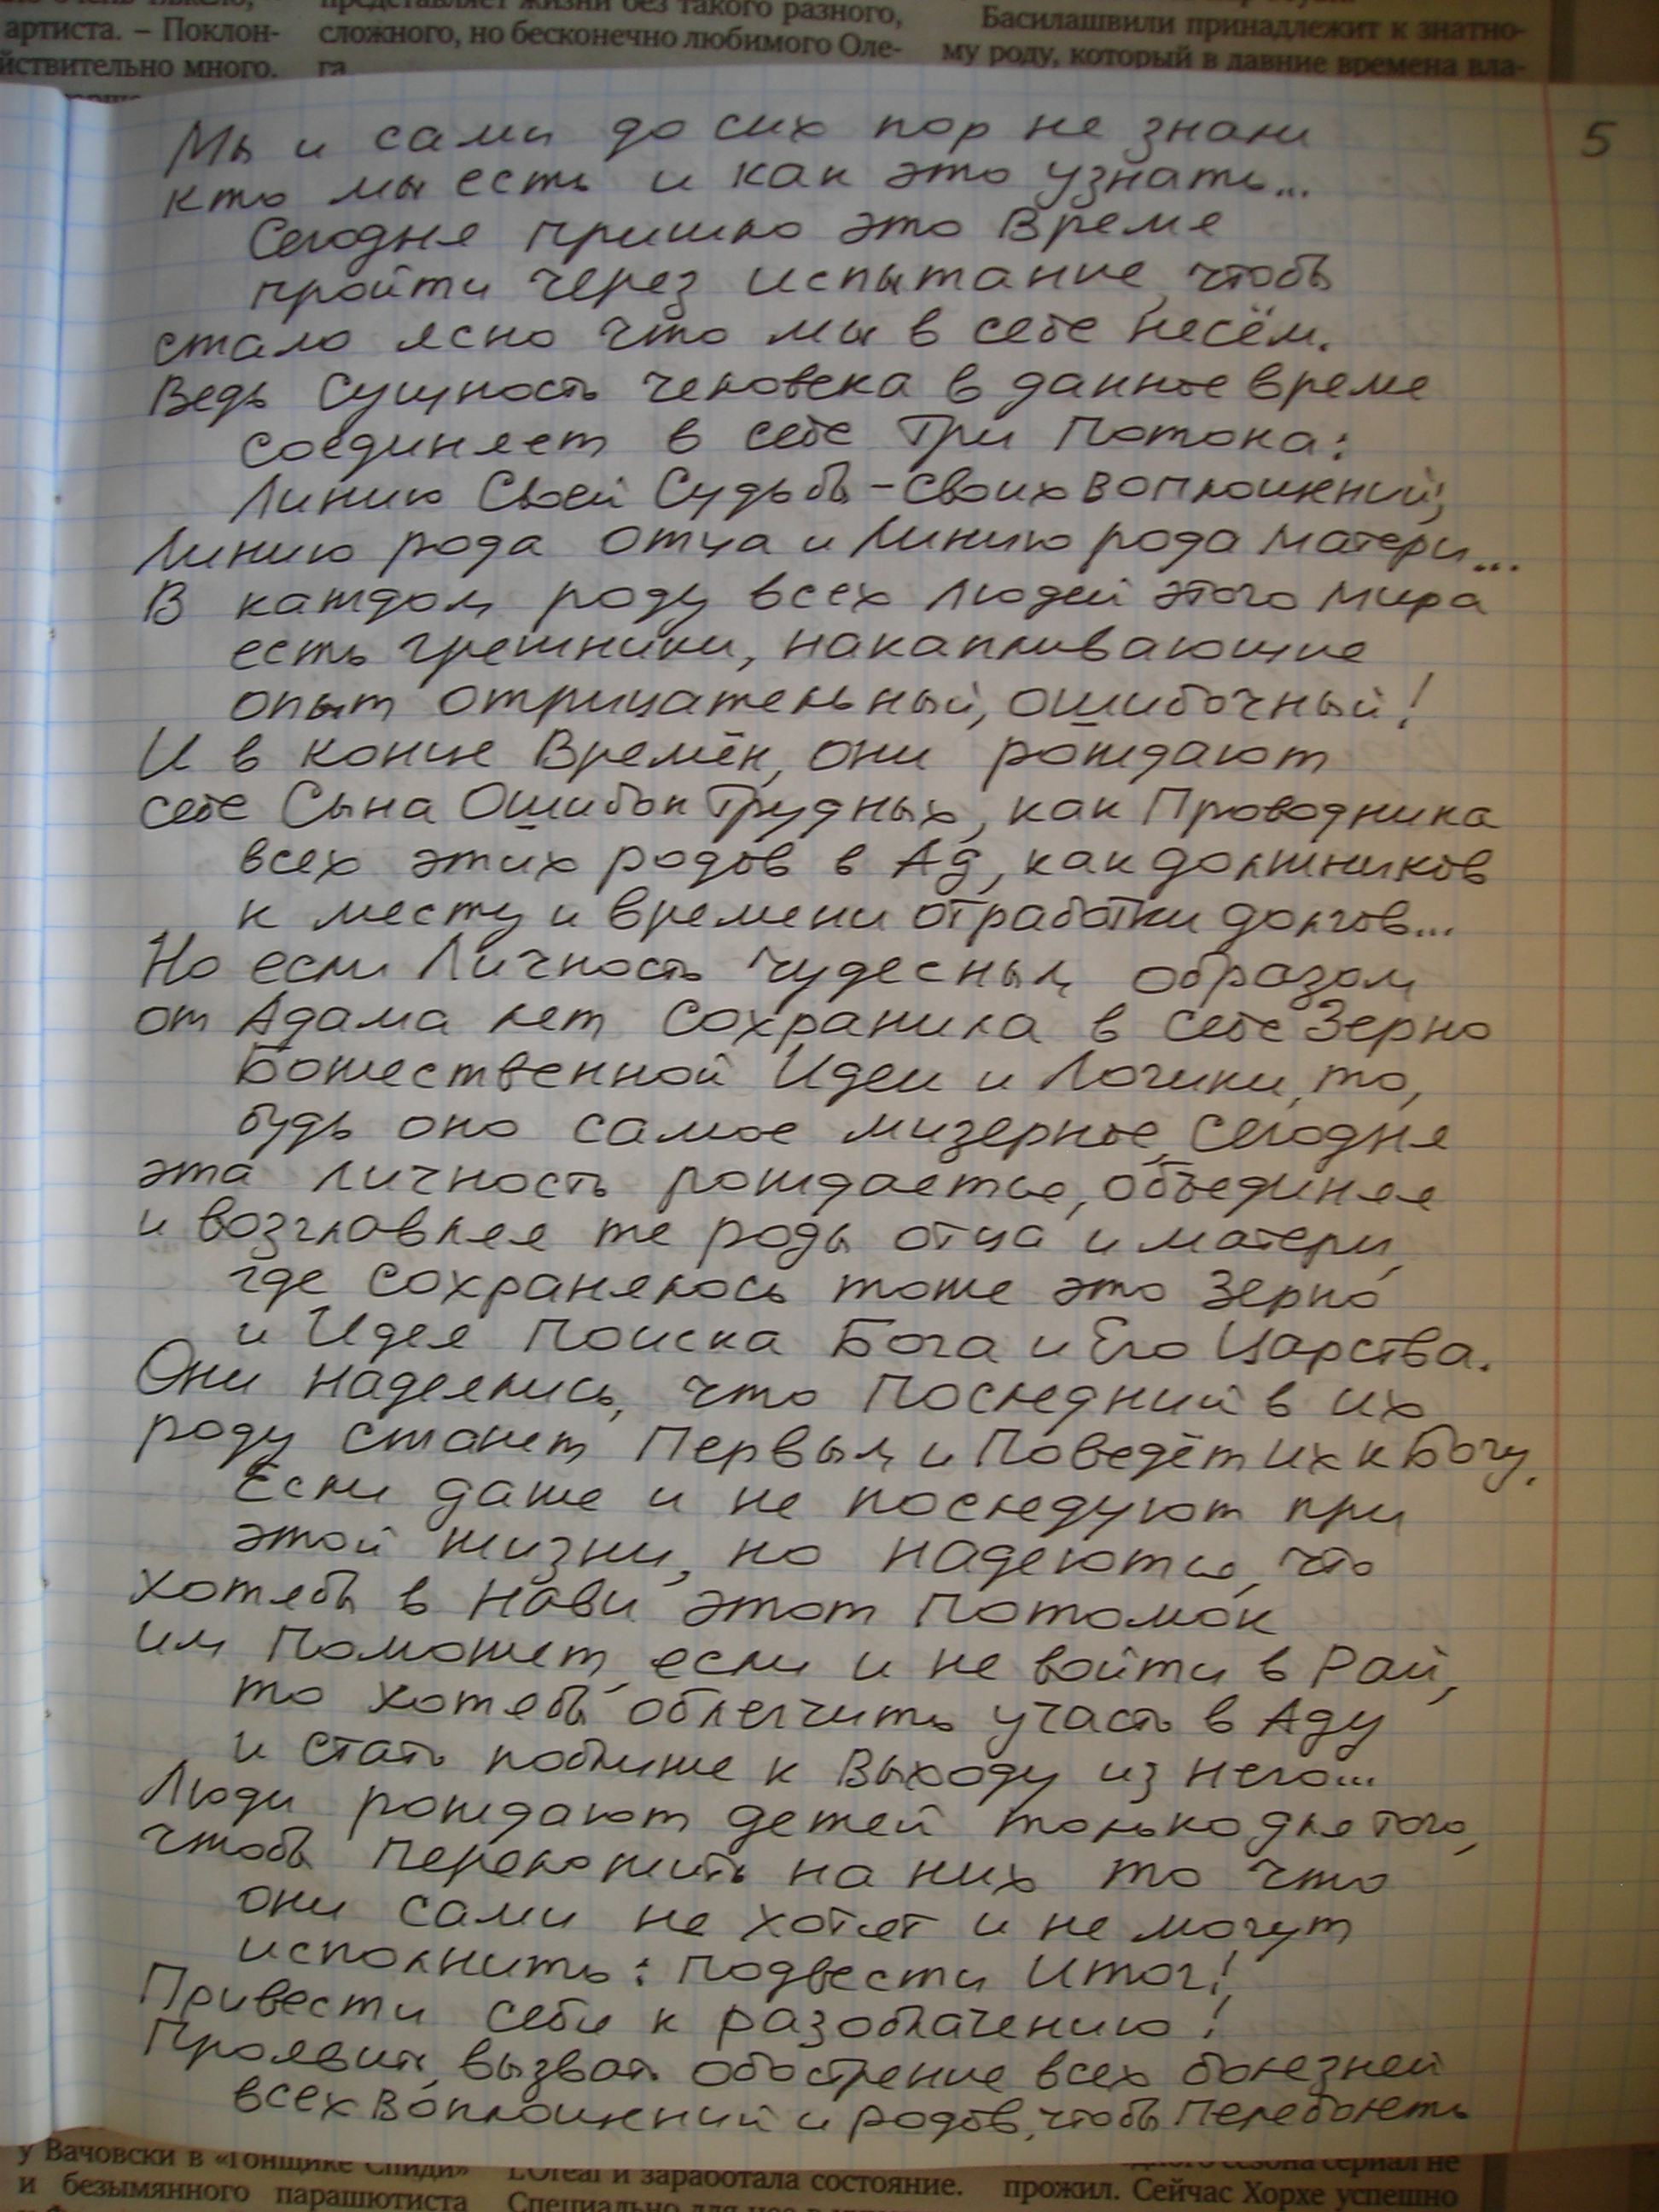 артиста. – Поклон-
йствительно много.
представляет жизни без такого разного,
сложного, но бесконечно любимого Оле-
га
Басилашвили принадлежит к знатно-
му роду, который в давние времена вла-
5
Мы и сами до сих пор не знали
кто мы есть и как это узнать...
Сегодня пришло это Время
пройти через испытание, чтобы
стало ясно что мы в себе несём.
Ведь Сущность человека в данное время
соединяет в себе Три Потока:
Линию Своей Судьбы – своих воплощений;
Линию рода отца и Линию рода матери...
В каждом роду всех людей этого мира
есть грешники, накапливающие
опыт отрицательный, ошибочный!
И в конце Времён, они рождают
себе Сына Ошибок Трудных, как Проводника
всех этих родов в Ад, как должников
к месту и времени отработки долгов...
Но если Личность чудесным образом
от Адама лет сохранила в себе Зерно
Божественной Идеи и Логики, то,
будь оно самое мизерное, сегодня
эта личность рождается, объединяя
и возглавляя те роды отца и матери,
где сохранялось тоже это Зерно
и Идея Поиска Бога и Его Царства.
Они надеялись, что Последний в их
роду станет Первым и Поведёт их к Богу.
Если даже и не последуют при
этой жизни, но надеются, что
хотябы в Нави этот Потомок
им Поможет, если и не войти в Рай,
то хотябы облегчить участь в Аду
и стать поближе к Выходу из него...
Люди рождают детей только для того,
чтобы Переложить на них то что
они сами не хотят и не могут
исполнить: Подвести Итог!
Привести себя к разоблачению!
Проявить, вызвать обострение всех болезней
всех Воплощений и родов, чтобы Переболеть
у Вачовски в «Гонщике Спиди»
и безымянного парашютиста
L'Oreal и заработала состояние.
сезона сериал не
прожил. Сейчас Хорхе успешно